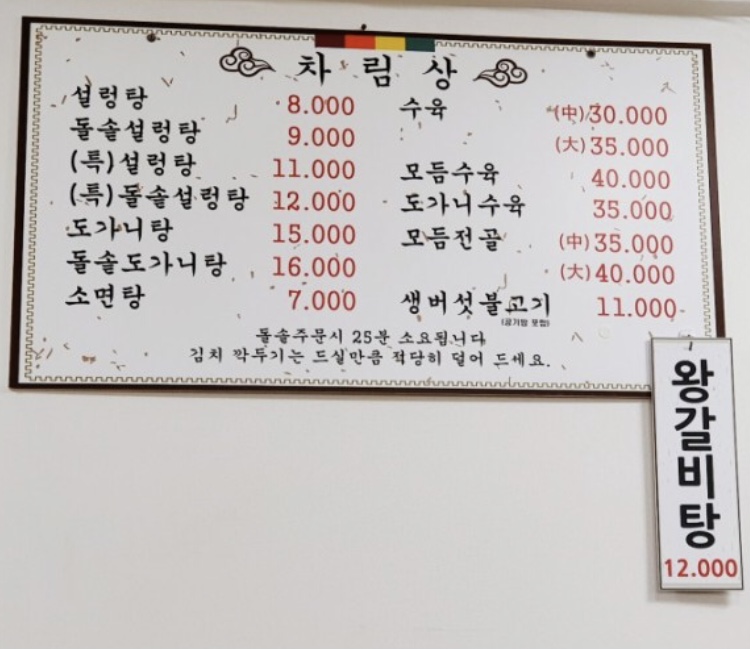 차림상
설렁탕 8.000
돌솥설렁탕 9.000
(특)설렁탕 11.000
(특)돌솥설렁탕 12.000
도가니탕 15.000
돌솥도가니탕 16.000
소면탕 7.000
수육 (中)30.000
(大)35.000
모듬수육 40.000
도가니수육 35.000
모듬전골 (中)35.000
(大)40.000
생버섯불고기 11.000
(공기밥 포함)
돌솥주문시 25분 소요됩니다
김치 깍두기는 드실만큼 적당히 덜어 드세요.
왕갈비탕
12.000